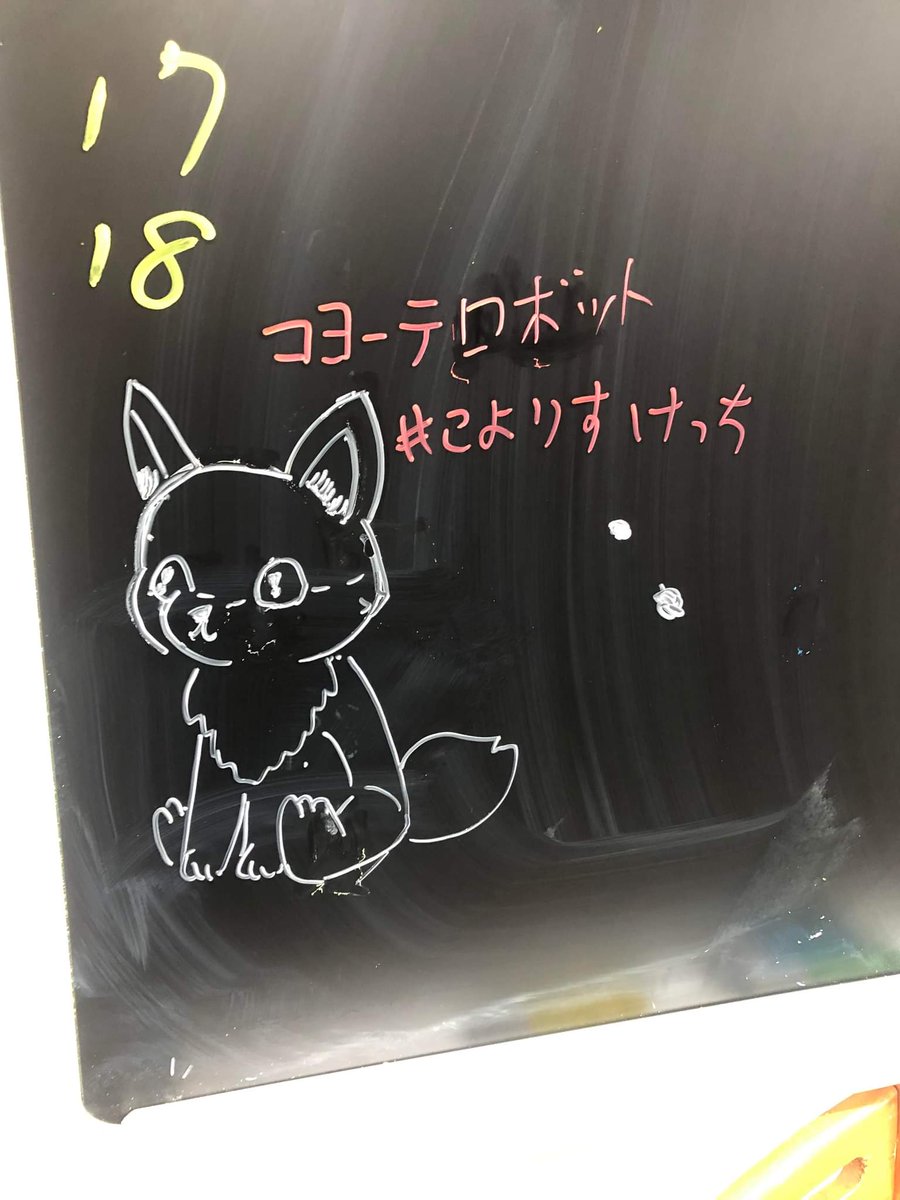 17
18
コヨーテロボット
#こよりすけっち